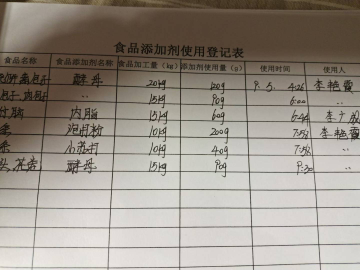 食品添加剂使用登记表
食品名称 食品添加剂名称 食品加工量(kg) 添加剂使用量(g) 使用时间 使用人
酵母 20kg 120g 9.5. 4:26 李艳霞
〃 15kg 90g 6:00 〃
内脂 15kg 60g 6:44 李
泡打粉 10kg 200g 7:58 李艳霞
小苏打 10kg 40g 7:58 〃
头,花卷 酵母 15kg 90g 9:30 〃